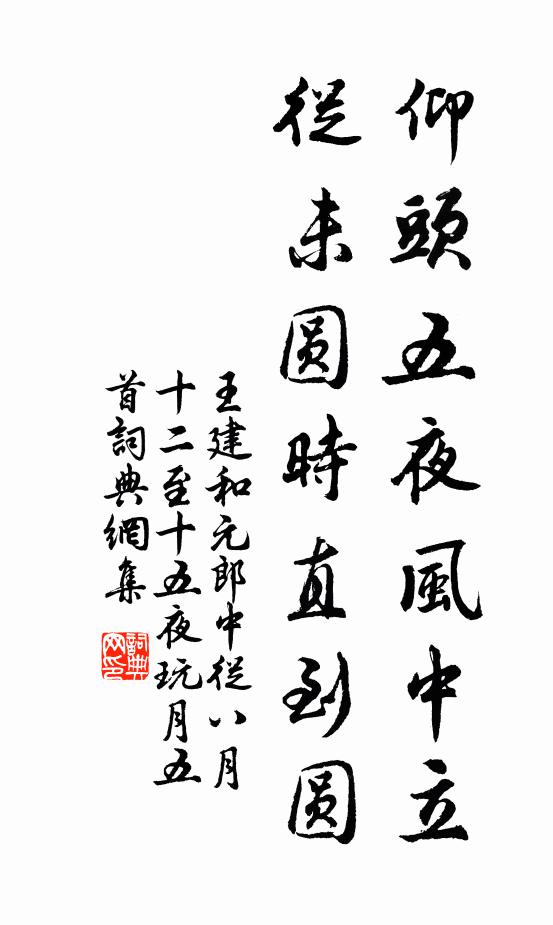 仰頭五夜風中立
從未圓時直到圓
王建和元郎中從八月
十二至十五夜玩月五
首詞典網集
詞典
网印